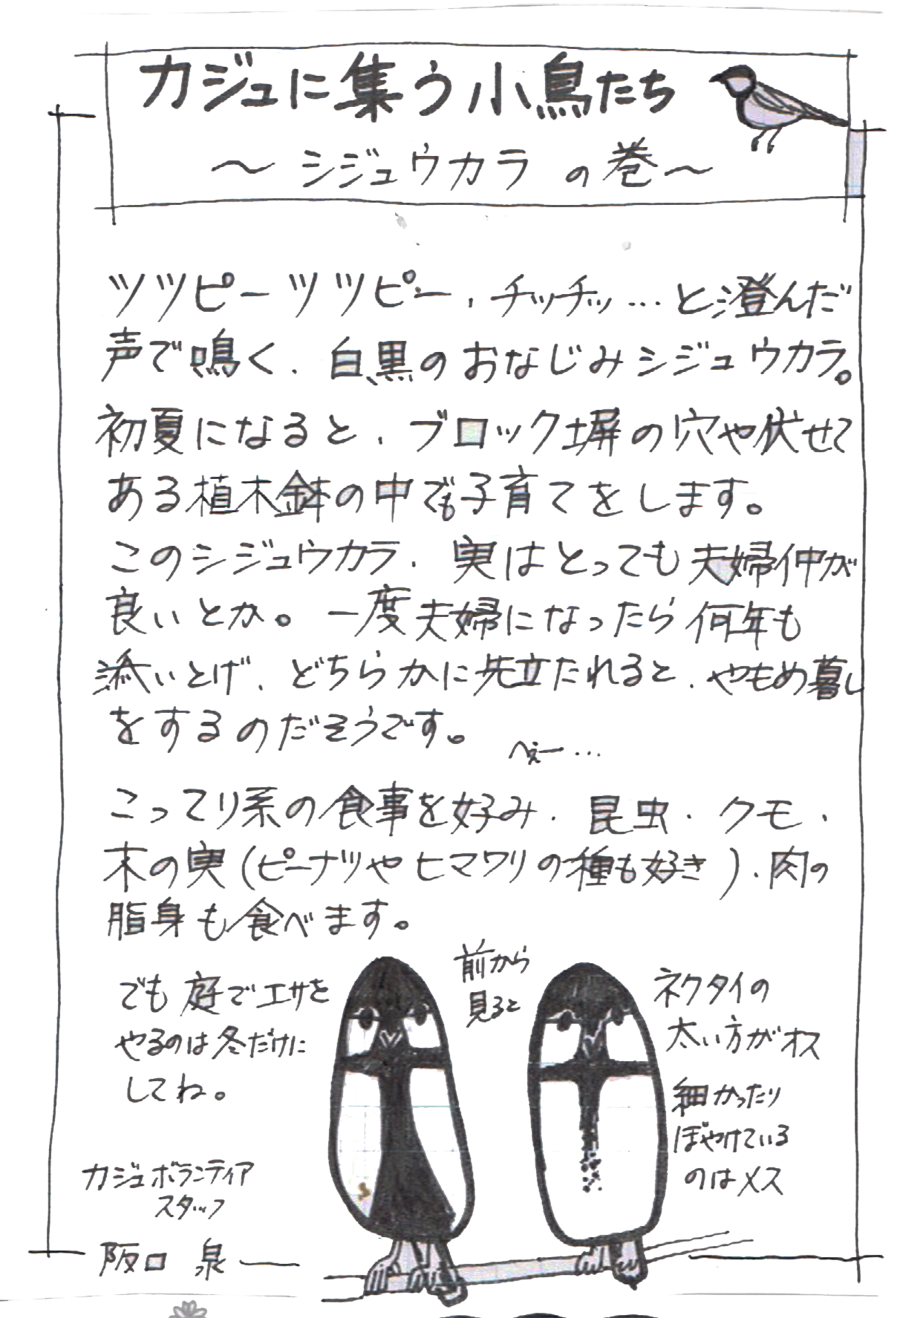 カジュに集う小鳥たち
～シジュウカラの巻～
ツツピーツツピー、チッチッ…と澄んだ
声で鳴く、白黒のおなじみシジュウカラ。
初夏になると、ブロック塀の穴や伏せて
ある植木鉢の中でも子育てをします。
このシジュウカラ、実はとっても夫婦仲が
良いとか。一度夫婦になったら何年も
添いとげ、どちらかに先立たれると、やもめ暮し
をするのだそうです。
へぇー…
こってり系の食事を好み、昆虫、クモ、
木の実(ピーナツやヒマワリの種も好き)、肉の
脂身も食べます。
でも庭でエサを
やるのは冬だけに
してね。
前から
見ると
ネクタイの
太い方がオス
細かったり
ぼやけている
のはメス
カジュボランティア
スタッフ
阪口 泉